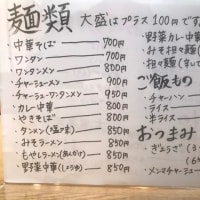 麺類 大盛はプラス100円です
・中華そば 700円
・ワンタン 700円
・ワンタンメン 800円
・チャーシューメン 900円
・チャーシュー・ワンタンメン 950円
・カレー中華 800円
・やきそば 800円
・タンメン(塩味) 850円
・みそラーメン 850円
・もやしラーメン(あんかけ) 850円
・野菜中華(しょうゆ) 850円
野菜カレー中
みそ担々麺
担々麺(辛し
ご飯もの
・チャーハン
・ライス
・半ライス
おつまみ
・ぎょうざ(3
・メンマチャーシュー